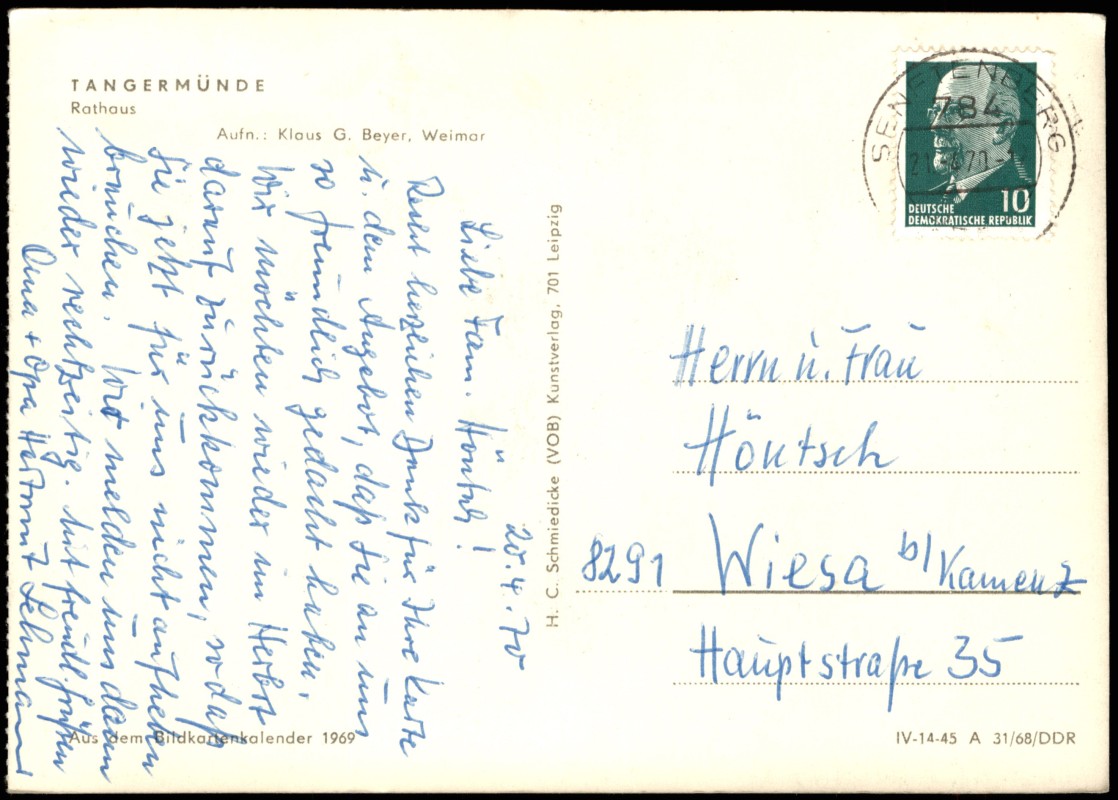 TANGERMÜNDE
Rathaus
Aufn.: Klaus G. Beyer, Weimar
20.4.70
Liebe Fam. Höntsch!
Recht herzlichen Dank für Ihre Karte
u. dem Angebot, daß Sie an uns
so freundlich gedacht haben.
Wir möchten wieder im Herbst
darauf zurückkommen, so daß
Sie jetzt für uns nicht aufheben
brauchen. Wir melden uns dann
wieder rechtzeitig. Mit freundl. Grüßen
Oma + Opa Hartmut Lehmann
Aus dem Bildkartenkalender 1969
H. C. Schmiedicke (VOB) Kunstverlag, 701 Leipzig
SENFTENBERG
784
10
DEUTSCHE
DEMOKRATISCHE REPUBLIK
Herrn u. Frau
Höntsch
8291 Wiesa b/Kamenz
Hauptstraße 35
IV-14-45 A 31/68/DDR